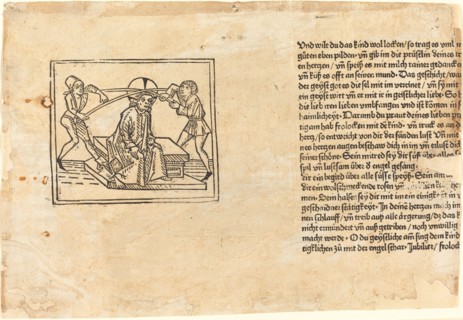 Vnd wilt du das kind wol locken / so trag es vmb mit
güten eben pilden · vñ gib im die prüstlin deines
en hertzen / vñ speiß es mit milch rainer gedancken
vñ küß es offt an seinen mund · Das geschicht / wan
der geyst got es dis sel mit im vereinet / vñ sy mit
ein geyst wirt vñ er mit ir in geistlicher liebe · So
die lieb iren lieben vmbfangen vnd ist kömen in
haimlicheyt · Darumb du praut deines lieben
tigam hab frolocken mit dẽ kind · vñ truck es an
hertz / so entweicht von dir der sünden lust · Vñ mit
nes hertzen augen beschaw dich in im vñ erlust dich
seiner schöne · Sein mit red sey dir süß über alles
spil vñ lustsam über ð engel gesang ·
dir ein begird über alle süsse speyß · Sein am
dir ein wolschmeckende rosen vñ
men · Dem halß · sey dir mit im ein einigkeit
geschaidner stätigkeyt · In deine hertzen mach im
nen schlauff / vñ treib auß alle ärgerung / dz das
nicht ermündert vñ auß getriben / noch vnwillig
macht werde · O du geystliche am̃ sing dem kind
tigklichen zů mit der engel schar · Jubilier / frolock